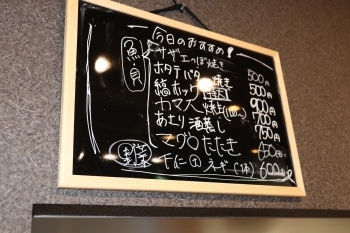 今日のおすすめ!
魚貝
サザエつぼ焼き 500円
ホタテバター焼き 500円
縞ホッケ 900円
カマス 700円
あさり酒蒸し 750円
マグロたたき 650円
野菜
ネギ(1本) 600円